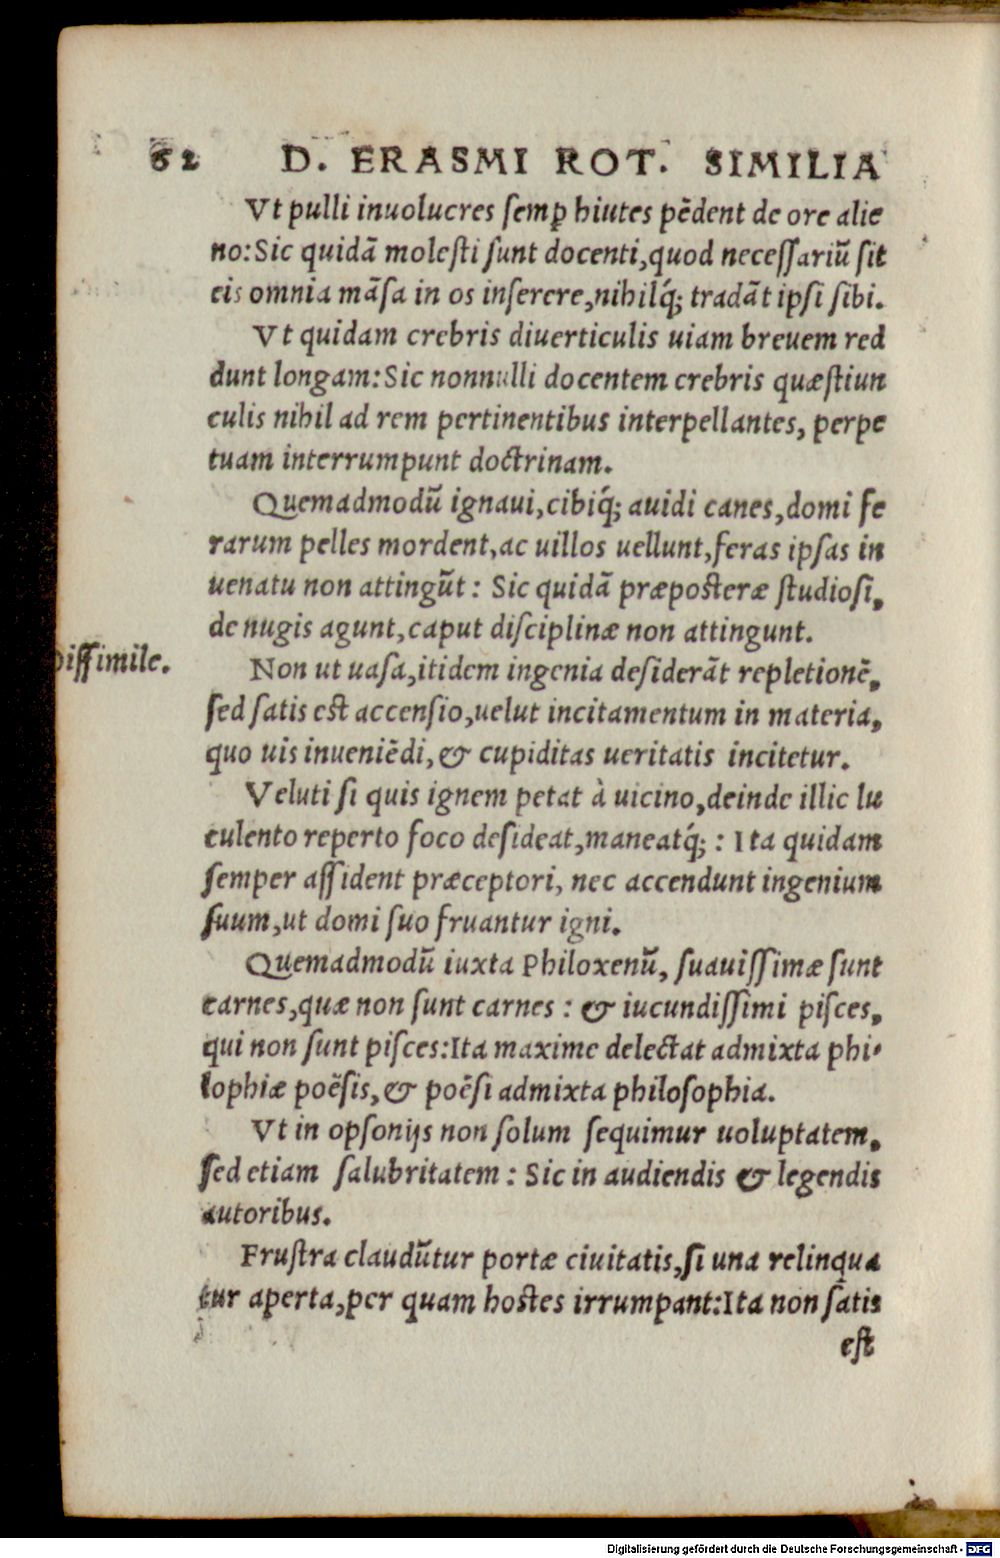 62 D. ERASMI ROT. SIMILIA
Vt pulli inuolucres semꝑ hiutes pẽdent de ore alie
no: Sic quidã molesti sunt docenti, quod necessariũ sit
eis omnia mãsa in os inserere, nihilq́; tradãt ipsi sibi.
Vt quidam crebris diuerticulis uiam breuem red
dunt longam: Sic nonnulli docentem crebris quæstiun
culis nihil ad rem pertinentibus interpellantes, perpe
tuam interrumpunt doctrinam.
Quemadmodũ ignaui, cibiq́; auidi canes, domi fe
rarum pelles mordent, ac uillos uellunt, feras ipsas in
uenatu non attingũt: Sic quidã præposteræ studiosi,
de nugis agunt, caput disciplinæ non attingunt.
Dissimile.
Non ut uasa, itidem ingenia desiderãt repletionẽ,
sed satis est accensio, uelut incitamentum in materia,
quo uis inueniẽdi, & cupiditas ueritatis incitetur.
Veluti si quis ignem petat à uicino, deinde illic lu
culento reperto foco desideat, maneatq́; : Ita quidam
semper assident præceptori, nec accendunt ingenium
suum, ut domi suo fruantur igni.
Quemadmodũ iuxta Philoxenũ, suauissimæ sunt
carnes, quæ non sunt carnes: & iucundissimi pisces,
qui non sunt pisces: Ita maxime delectat admixta phi-
lophiæ poẽsis, & poẽsi admixta philosophia.
Vt in opsonijs non solum sequimur uoluptatem,
sed etiam salubritatem: Sic in audiendis & legendis
autoribus.
Frustra claudũtur portæ ciuitatis, si una relinqua
tur aperta, per quam hostes irrumpant: Ita non satis
est
Digitalisierung gefördert durch die Deutsche Forschungsgemeinschaft - DFG